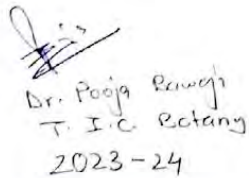 Dr. Pooja Rawat
T. I.C. Botany
2023-24